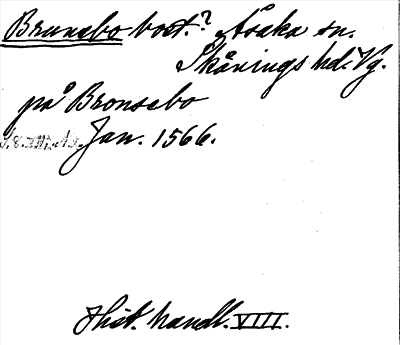 Brunsbo bost.? Åsaka sn.
Skånings hd. Vg.
på Bronsebo
Jan. 1566.
Hist. handl. VIII.